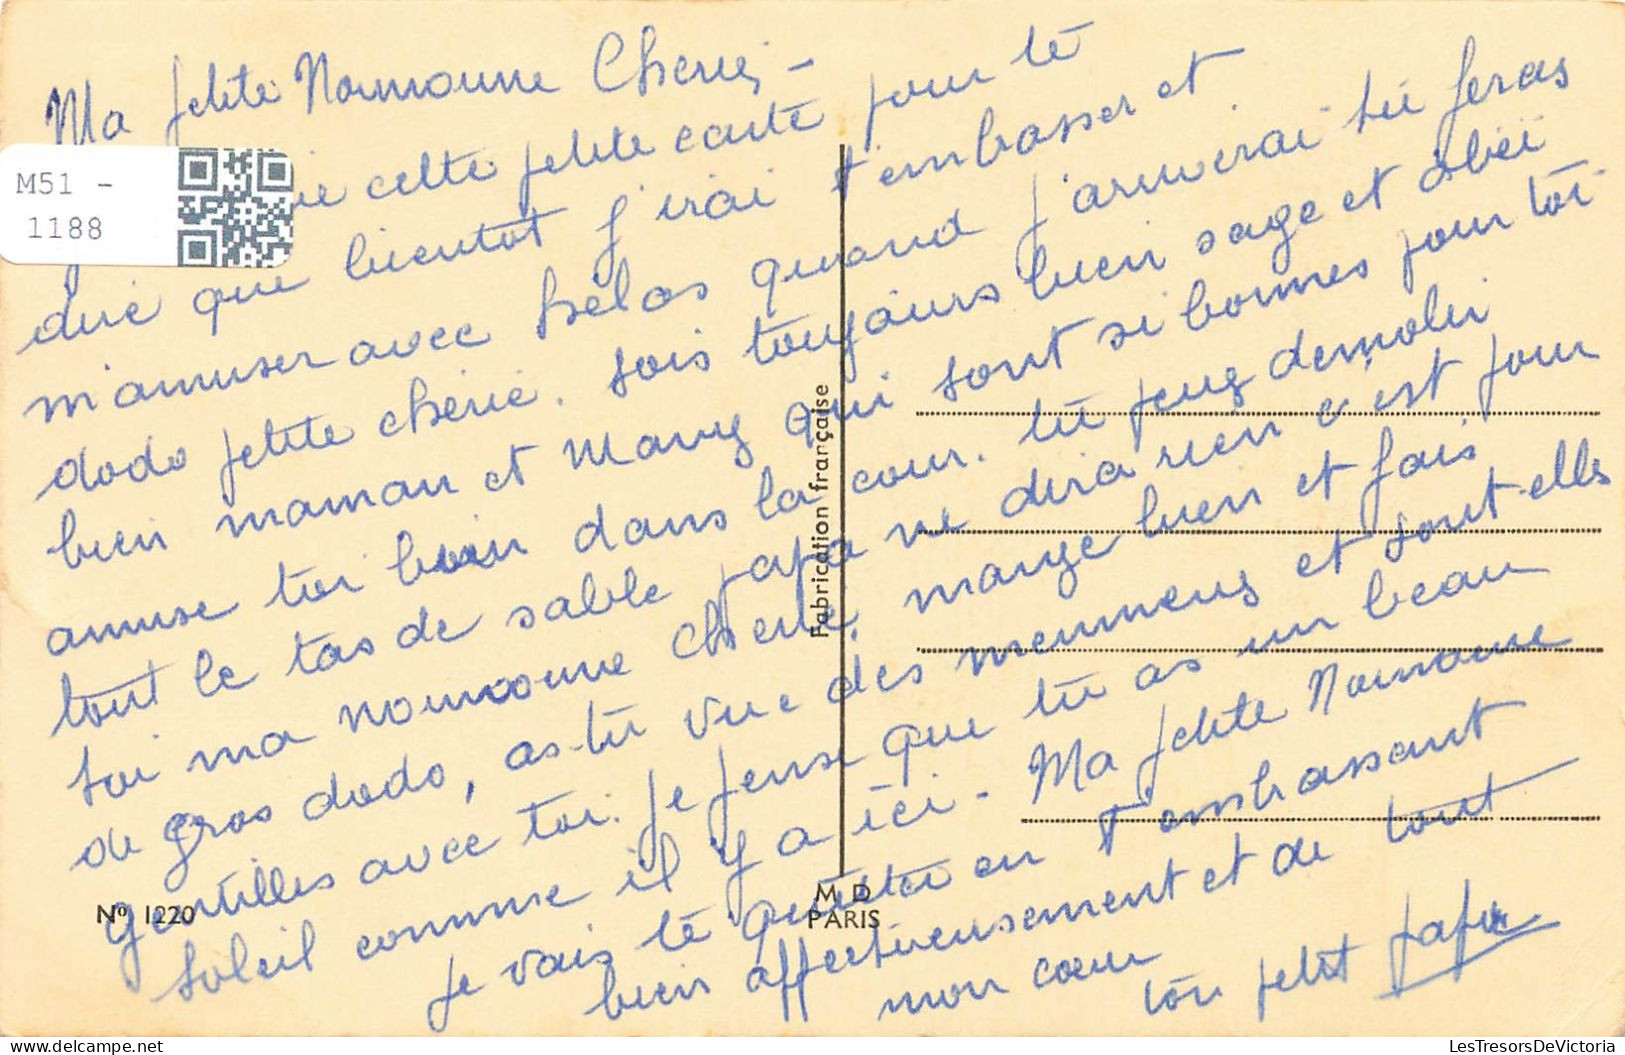 Ma petite Nounoune Cherie -
cette petite carte pour te
dire que bientot j'irai t'embasser et
m'amuser avec helas quand j'arriverai tu feras
dodo petite chérie. sois toujours bien sage et obéi
bien maman et Mamy qui sont si bonnes pour toi
amuse toi bien dans la cour. tu peux demolir
tout le tas de sable papa ne dira rien c'est pour
toi ma nounoune cherie, mange bien et fais
de gros dodo, as-tu vue des et sont-elle
gentilles avec toi. Je pense que tu as un beau
soleil comme il y a ici - Ma petite Nounoune
Je vais te quitter en t'embrassant
bien affectueusement et de tout
mon cœur
ton petit papa
M51 -
1188
Fabrication française
Nº 1220
M D
PARIS
LesTresorsDeVictoria